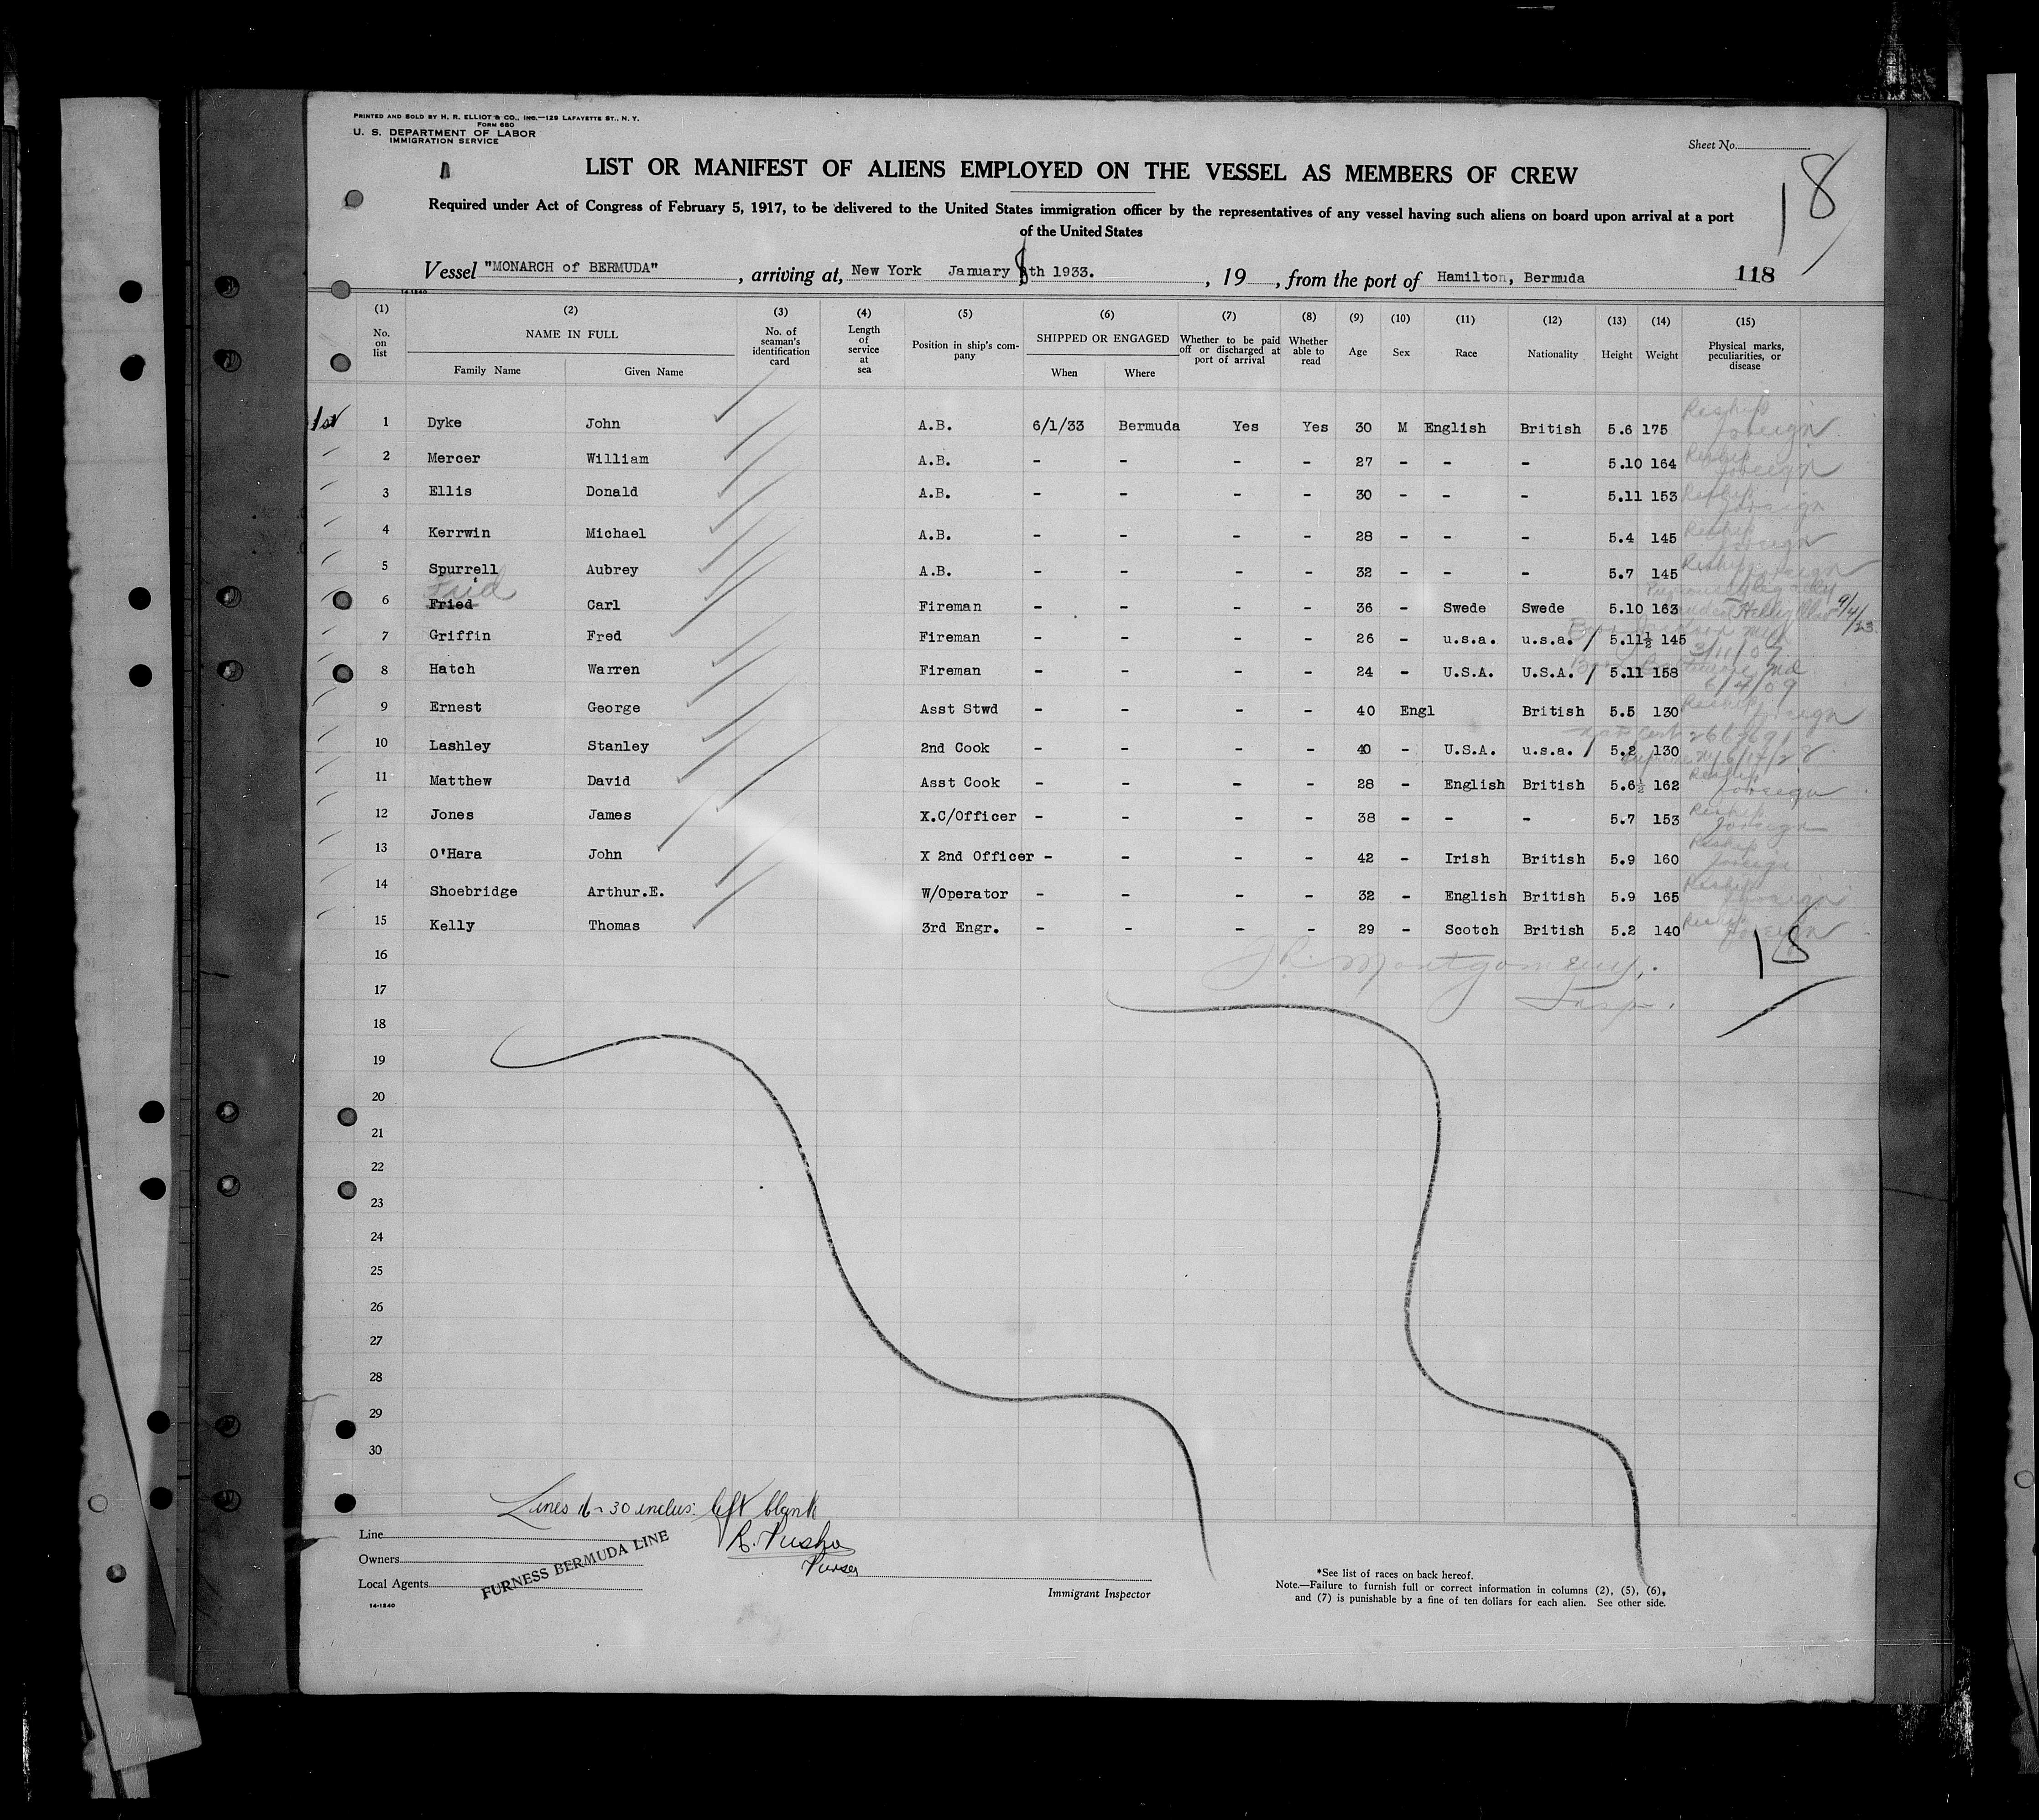 PRINTED AND SOLD BY H. R. ELLIOT & CO., INC.—129 LAFAYETTE ST., N. Y.
FORM 680
U. S. DEPARTMENT OF LABOR
IMMIGRATION SERVICE
Sheet No.
LIST OR MANIFEST OF ALIENS EMPLOYED ON THE VESSEL AS MEMBERS OF CREW
18
Required under Act of Congress of February 5, 1917, to be delivered to the United States immigration officer by the representatives of any vessel having such aliens on board upon arrival at a port
of the United States
Vessel "MONARCH of BERMUDA", arriving at, New York January 8th 1933., 19, from the port of Hamilton, Bermuda 118
14-1240
(1) (2) (3) (4) (5) (6) (7) (8) (9) (10) (11) (12) (13) (14) (15)
No. on list NAME IN FULL Family Name Given Name No. of seaman's identification card Length of service at sea Position in ship's company SHIPPED OR ENGAGED When Where Whether to be paid off or discharged at port of arrival Whether able to read Age Sex Race Nationality Height Weight Physical marks, peculiarities, or disease
1st 1 Dyke John A.B. 6/1/33 Bermuda Yes Yes 30 M English British 5.6 175 Reship foreign
2 Mercer William A.B. - - - - 27 - - - 5.10 164 Reship foreign
3 Ellis Donald A.B. - - - - 30 - - - 5.11 153 Reship foreign
4 Kerrwin Michael A.B. - - - - 28 - - - 5.4 145 Reship foreign
5 Spurrell Aubrey A.B. - - - - 32 - - - 5.7 145 Reship foreign
Faid
6 Fried Carl Fireman - - - - 36 - Swede Swede 5.10 163 9/4/23
7 Griffin Fred Fireman - - - - 26 - u.s.a. u.s.a. / 5.11½ 145 3/11/07
8 Hatch Warren Fireman - - - - 24 - U.S.A. U.S.A. / 5.11 158 Born Baltimore Md 6/4/09
9 Ernest George Asst Stwd - - - - 40 Engl British 5.5 130 Reship foreign
10 Lashley Stanley 2nd Cook - - - - 40 - U.S.A. u.s.a. / 5.2 130 Nat Cert
11 Matthew David Asst Cook - - - - 28 - English British 5.6½ 162 Reship foreign
12 Jones James X.C/Officer - - - - 38 - - - 5.7 153 Reship foreign
13 O'Hara John X 2nd Officer - - - - 42 - Irish British 5.9 160 Reship foreign
14 Shoebridge Arthur.E. W/Operator - - - - 32 - English British 5.9 165 Reship foreign
15 Kelly Thomas 3rd Engr. - - - - 29 - Scotch British 5.2 140 Reship foreign
16 Montgomery.
17 Insp.
18
19
20
21
22
23
24
25
26
27
28
29
30
Lines 16-30 inclus: left blank
Line
Owners
Local Agents
FURNESS BERMUDA LINE
Purser
Immigrant Inspector
14-1240
*See list of races on back hereof.
Note.—Failure to furnish full or correct information in columns (2), (5), (6),
and (7) is punishable by a fine of ten dollars for each alien. See other side.